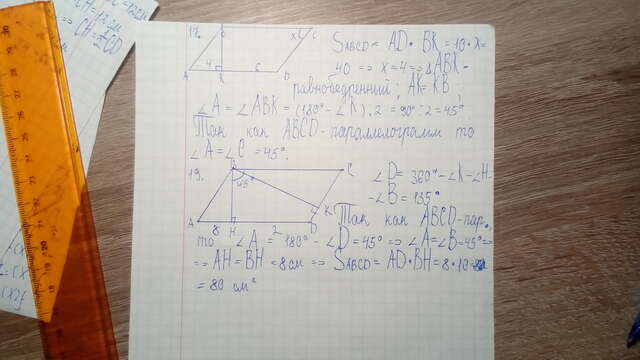 17.
C
x
4
6
A
K
D
S ABCD = AD · BK = 10 · x =
40 => x = 4 => △ABK -
равнобедренний; AK = KB
∠A = ∠ABK = (180° - ∠K) : 2 = 90° : 2 = 45°
Так как ABCD - параллелограмм то
∠A = ∠C = 45°.
19.
45°
C
K
A
8
H
2
D
∠D = 360° - ∠K - ∠H -
- ∠B = 135°
Так как ABCD - пар.,
то ∠A = 180° - ∠D = 45° => ∠A = ∠B = 45° =>
=> AH = BH = 8 см => S ABCD = AD · BH = 8 · 10 =
= 80 см²
CH = 12 см
=> CH = ½ CD